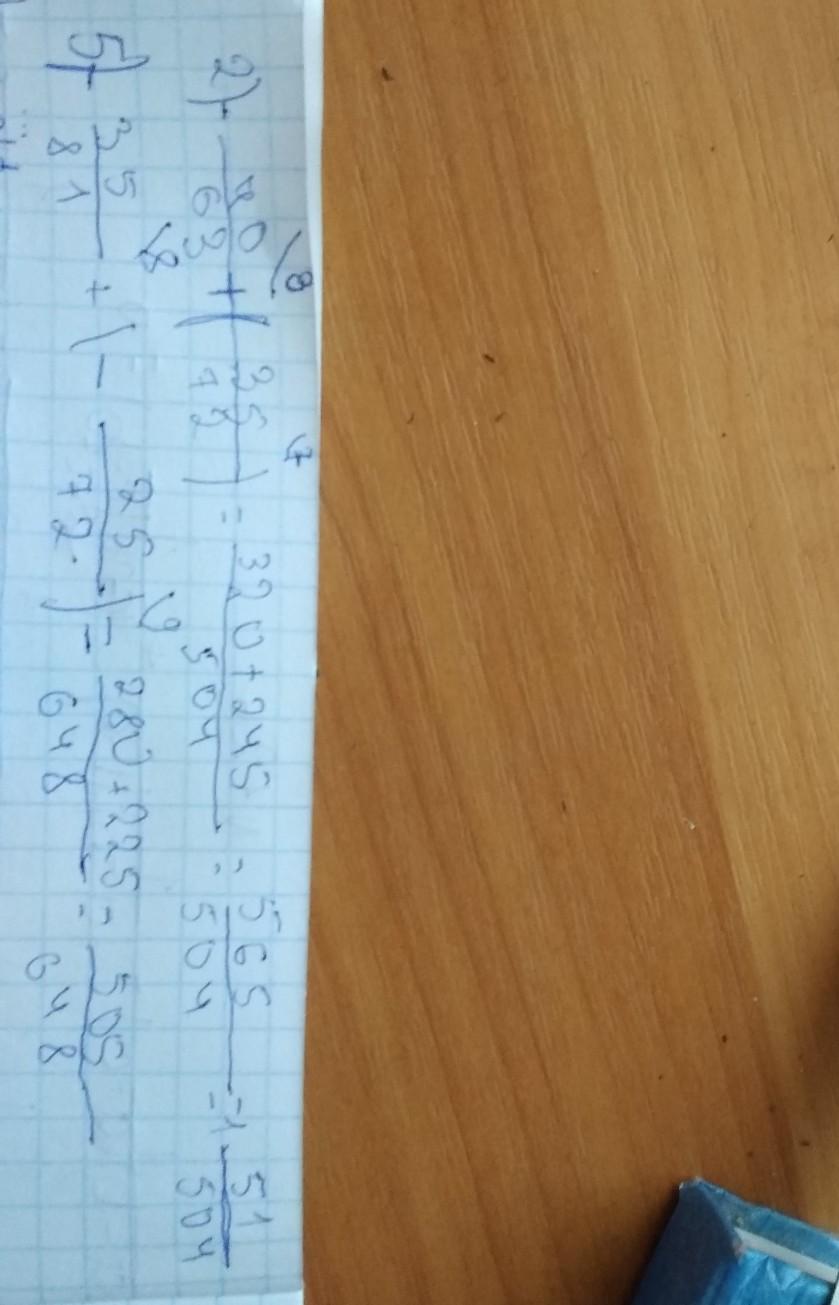 2) - 40/63 \8 + ( 35/72 ) \7 = 320+245/504 = 565/504 = 1 51/504
5) - 35/81 \8 + ( - 25/72 ) \9 = 280+225/648 = 505/648